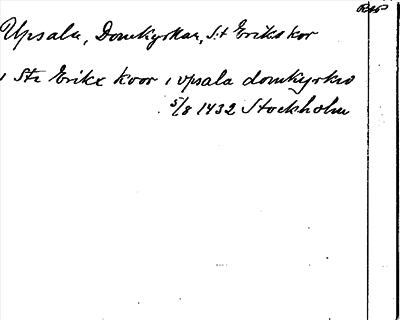 RAP
Upsala, Domkyrkan, S:t Eriks kor
i Sti Erikx koor i vpsala domkyrkio
5/8 1432 Stockholm